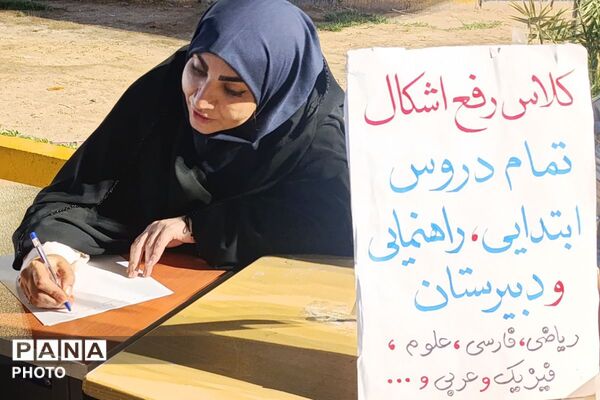 کلاس رفع اشکال
تمام دروس
ابتدایی، راهنمایی
و دبیرستان
ریاضی، فارسی، علوم،
فیزیک و عربی و ...
PANA
PHOTO